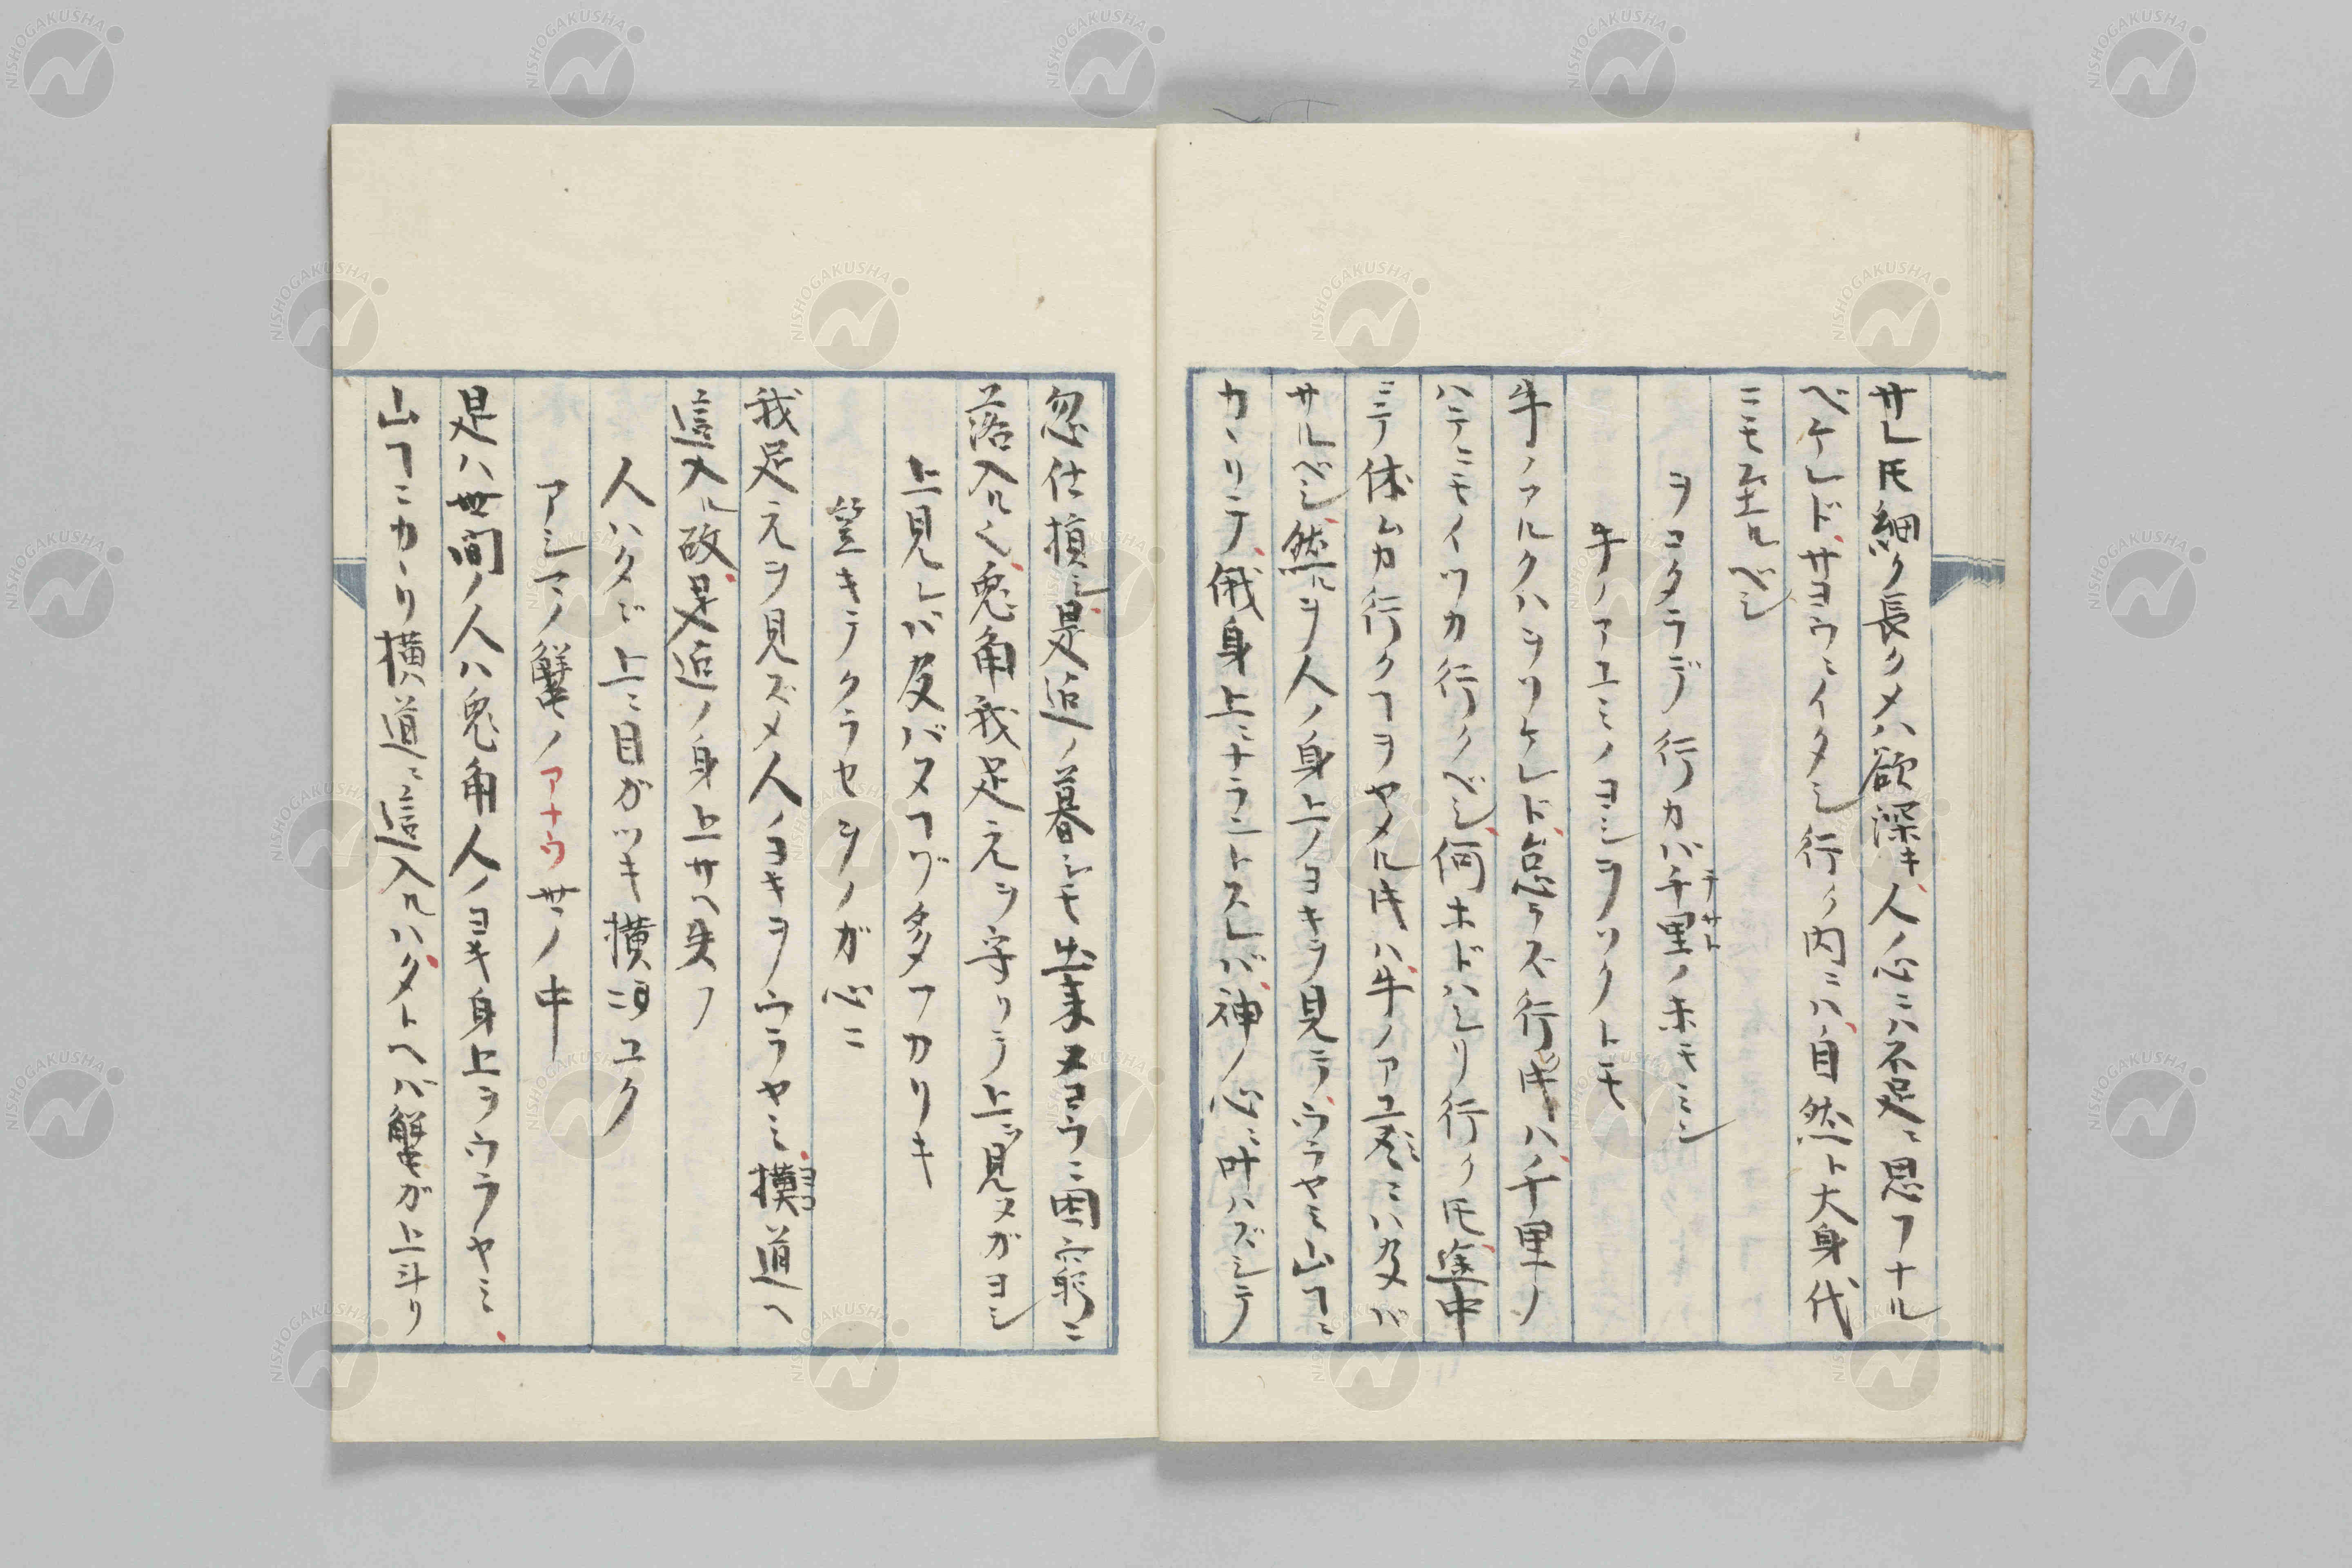 サレ𪜈細ク長クメハ欲深キ人ノ心ニハ不足ニ思フナル
ベケレド、サヨウニイタシ行ク内ニハ、自然ト大身代
ニモ至ルベシ
ヲコタラデ行カバ千里ノホモミン
チサト
牛ノアユミノヨシヲソクトモ
牛ノアルクハヲソケレド、怠ラズ行時ハ、千里ノ
ハテニモイツカ行クベシ、何ホドハシリ行ク𪜈、途中
ニテ休ムカ行クヿヲヤメル時ハ、牛ノアユミニハ及バ
サルベシ、然ルヲ人ノ身上ノヨキヲ見テ、ウラヤミ山ヿニ
カヽリテ、俄身上ニナラントスレバ、神ノ心ニ叶ハズシテ
忽仕損シ、是迄ノ暮シモ出来ヌヨウニ困窮ニ
落入ルく、兎角我足元ヲ守リテ上ヲ見ヌガヨシ
上見レバ及バヌヿゾ多フカリキ
笠キテクラセヲノガ心ニ
我足元ヲ見ズメ人ノヨキヲノウラヤミ、横道ヘ
ヨコ
這入ル故、是迄ノ身上サヘ失フ
人ハタヾ上ニ目ガツキ横ニユク
アシマノ蟹ノアナウ世ノ中
是ハ世間ノ人ハ兎角人ノヨキ身上ヲウラヤミ、
山ヿニカヽリ横道ニ這入ルハ、タトヘバ蟹ガ上斗リ